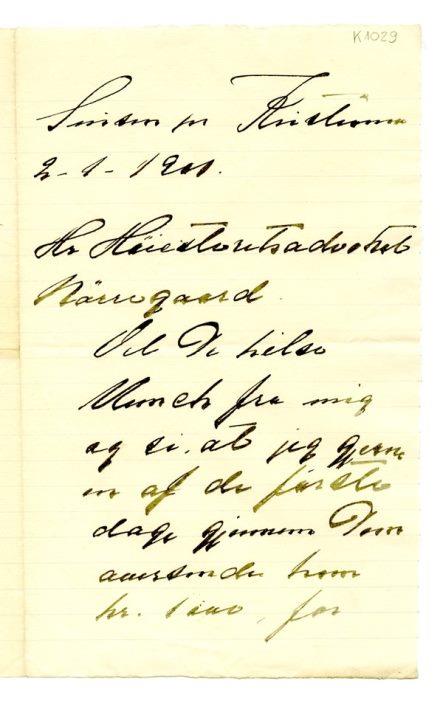 K1029
Sinsen pr Kristiania
2-1-1901.
Hr Höiesteretsadvokat
Nörregaard
Vil De hilse
Munch fra mig
og si, at jeg gjerne
en af de förste
dage gjennem Dem
oversender ham
kr. 1000, for